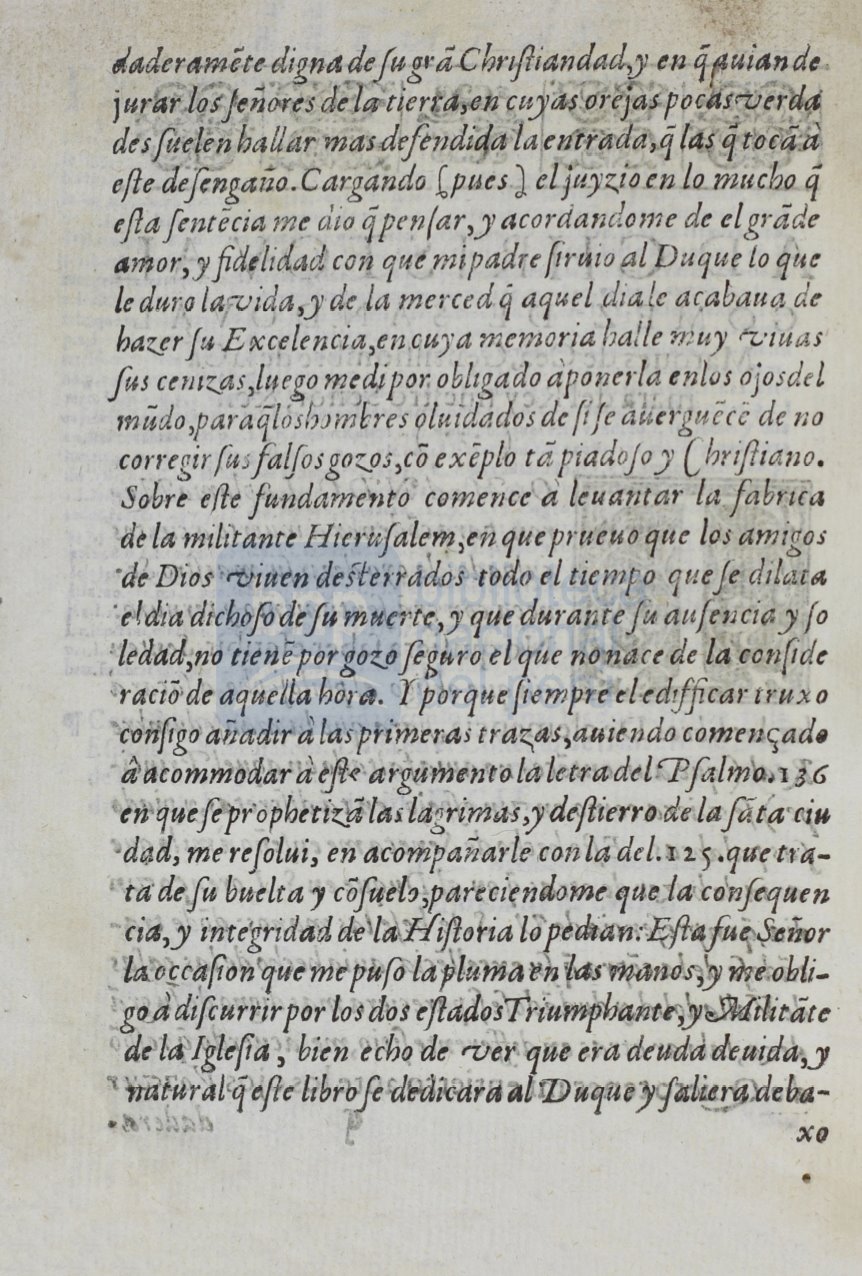 daderamẽte digna de ſu grã Chriſtiandad, y en q̃ auian de
jurar los ſeñores de la tierra, en cuyas orejas pocas verda
des ſuelen hallar mas defendida la entrada, q̃ las q̃ tocã à
eſte deſengaño. Cargando [pues] el juyzio en lo mucho q̃
eſta ſentẽcia me dio q̃ penſar, y acordandome de el grãde
amor, y fidelidad con que mi padre ſiruio al Duque lo que
le duro la vida, y de la merced q̃ aquel dia le acabaua de
hazer ſu Excelencia, en cuya memoria halle muy viuas
ſus cenizas, luego me di por obligado à ponerla en los ojos del
mũdo, para q̃ los hombres oluidados de ſi ſe auerguẽcẽ de no
corregir ſus falſos gozos, cõ exẽplo tã piadoſo y Chriſtiano.
Sobre eſte fundamento comence à leuantar la fabrica
de la militante Hieruſalem, en que prueuo que los amigos
de Dios viuen deſterrados todo el tiempo que ſe dilata
el dia dichoſo de ſu muerte, y que durante ſu auſencia y ſo
ledad, no tienẽ por gozo ſeguro el que no nace de la conſide
raciõ de aquella hora. Y porque ſiempre el edifficar truxo
conſigo añadir à las primeras trazas, auiendo començado
â acommodar à eſte argumento la letra del Pſalmo. 136
en que ſe prophetizã las lagrimas, y deſtierro de la ſãta ciu
dad, me reſolui, en acompañarle con la del. 125. que tra-
ta de ſu buelta y cõſuelo, pareciendome que la conſequen
cia, y integridad de la Hiſtoria lo pedian. Eſta fue Señor
la occaſion que me puſo la pluma en las manos, y me obli-
go à diſcurrir por los dos eſtados Triumphante, y Militãte
de la Igleſia, bien echo de ver que era deuda deuida, y
natural q̃ eſte libro ſe dedicara al Duque y ſaliera deba-
xo